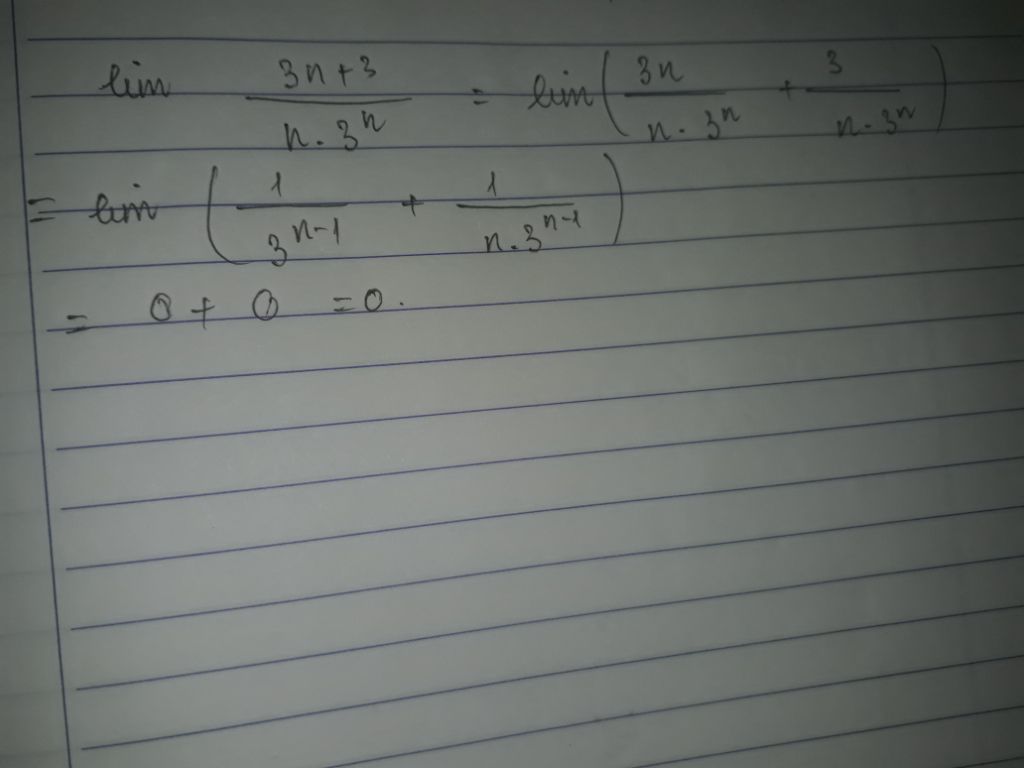 lim (3n+3)/(n.3^n) = lim(3n/(n.3^n) + 3/(n.3^n))
= lim (1/3^(n-1) + 1/(n.3^(n-1)))
= 0 + 0 = 0.